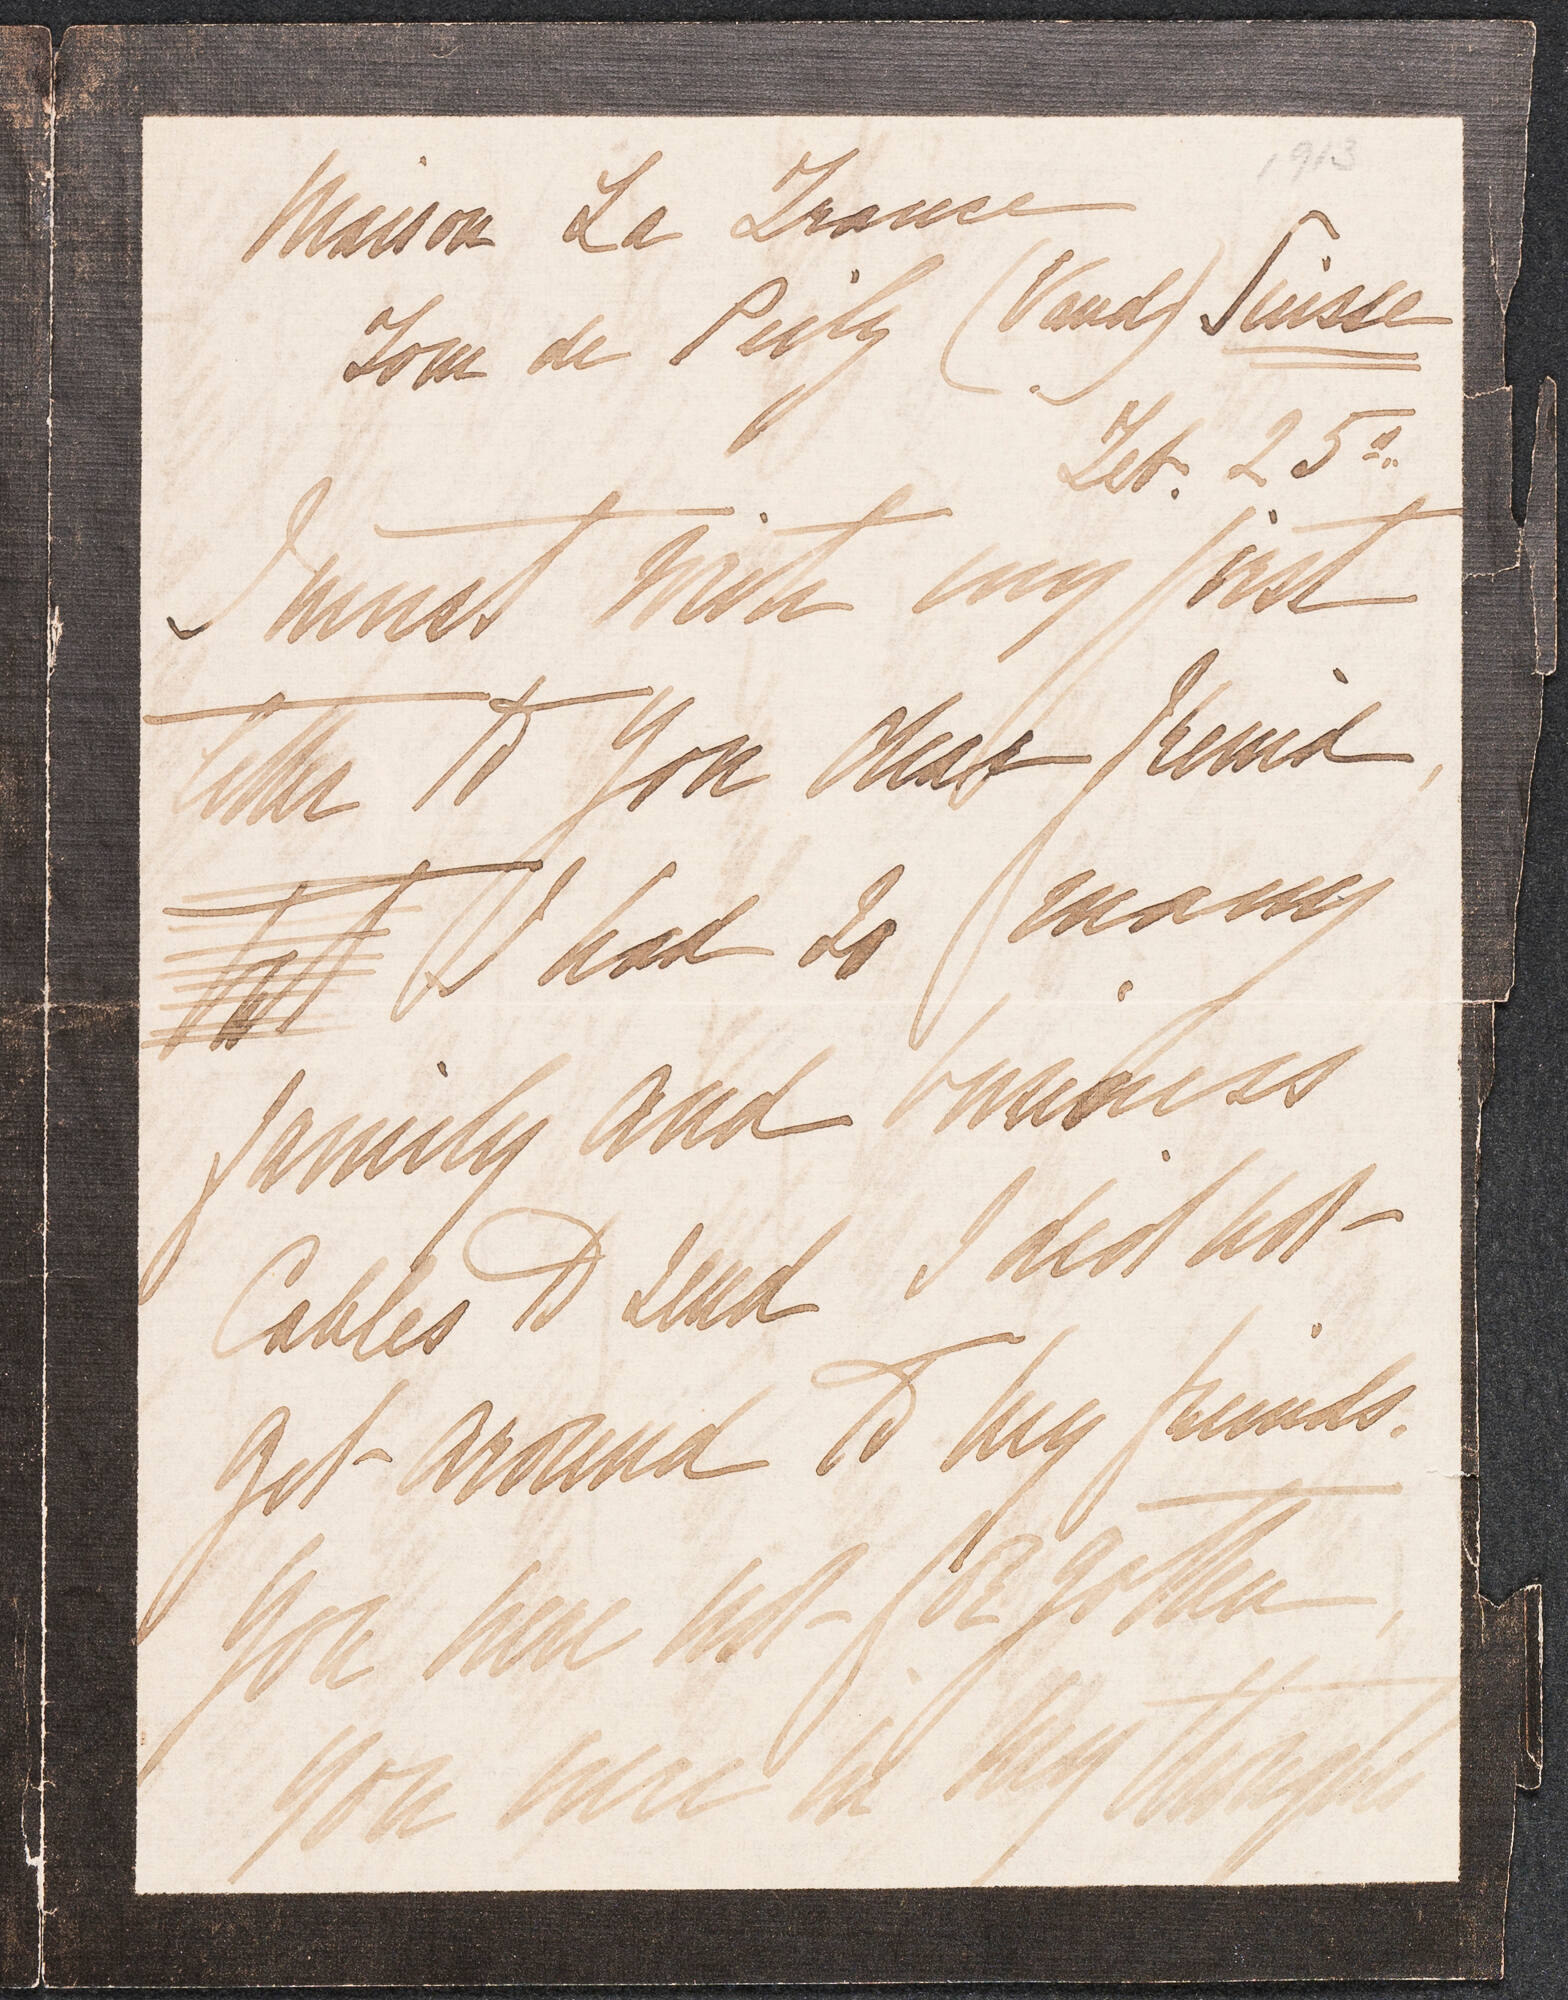 1913
Maison La France
Tour de Peilz (Vaud) Suisse
Feb. 25th
I must write my first
letter to you dear friend,
I had so many
family and business
Cables to send I did not
get around to my friends.
You were not forgotten,
you were in my thoughts